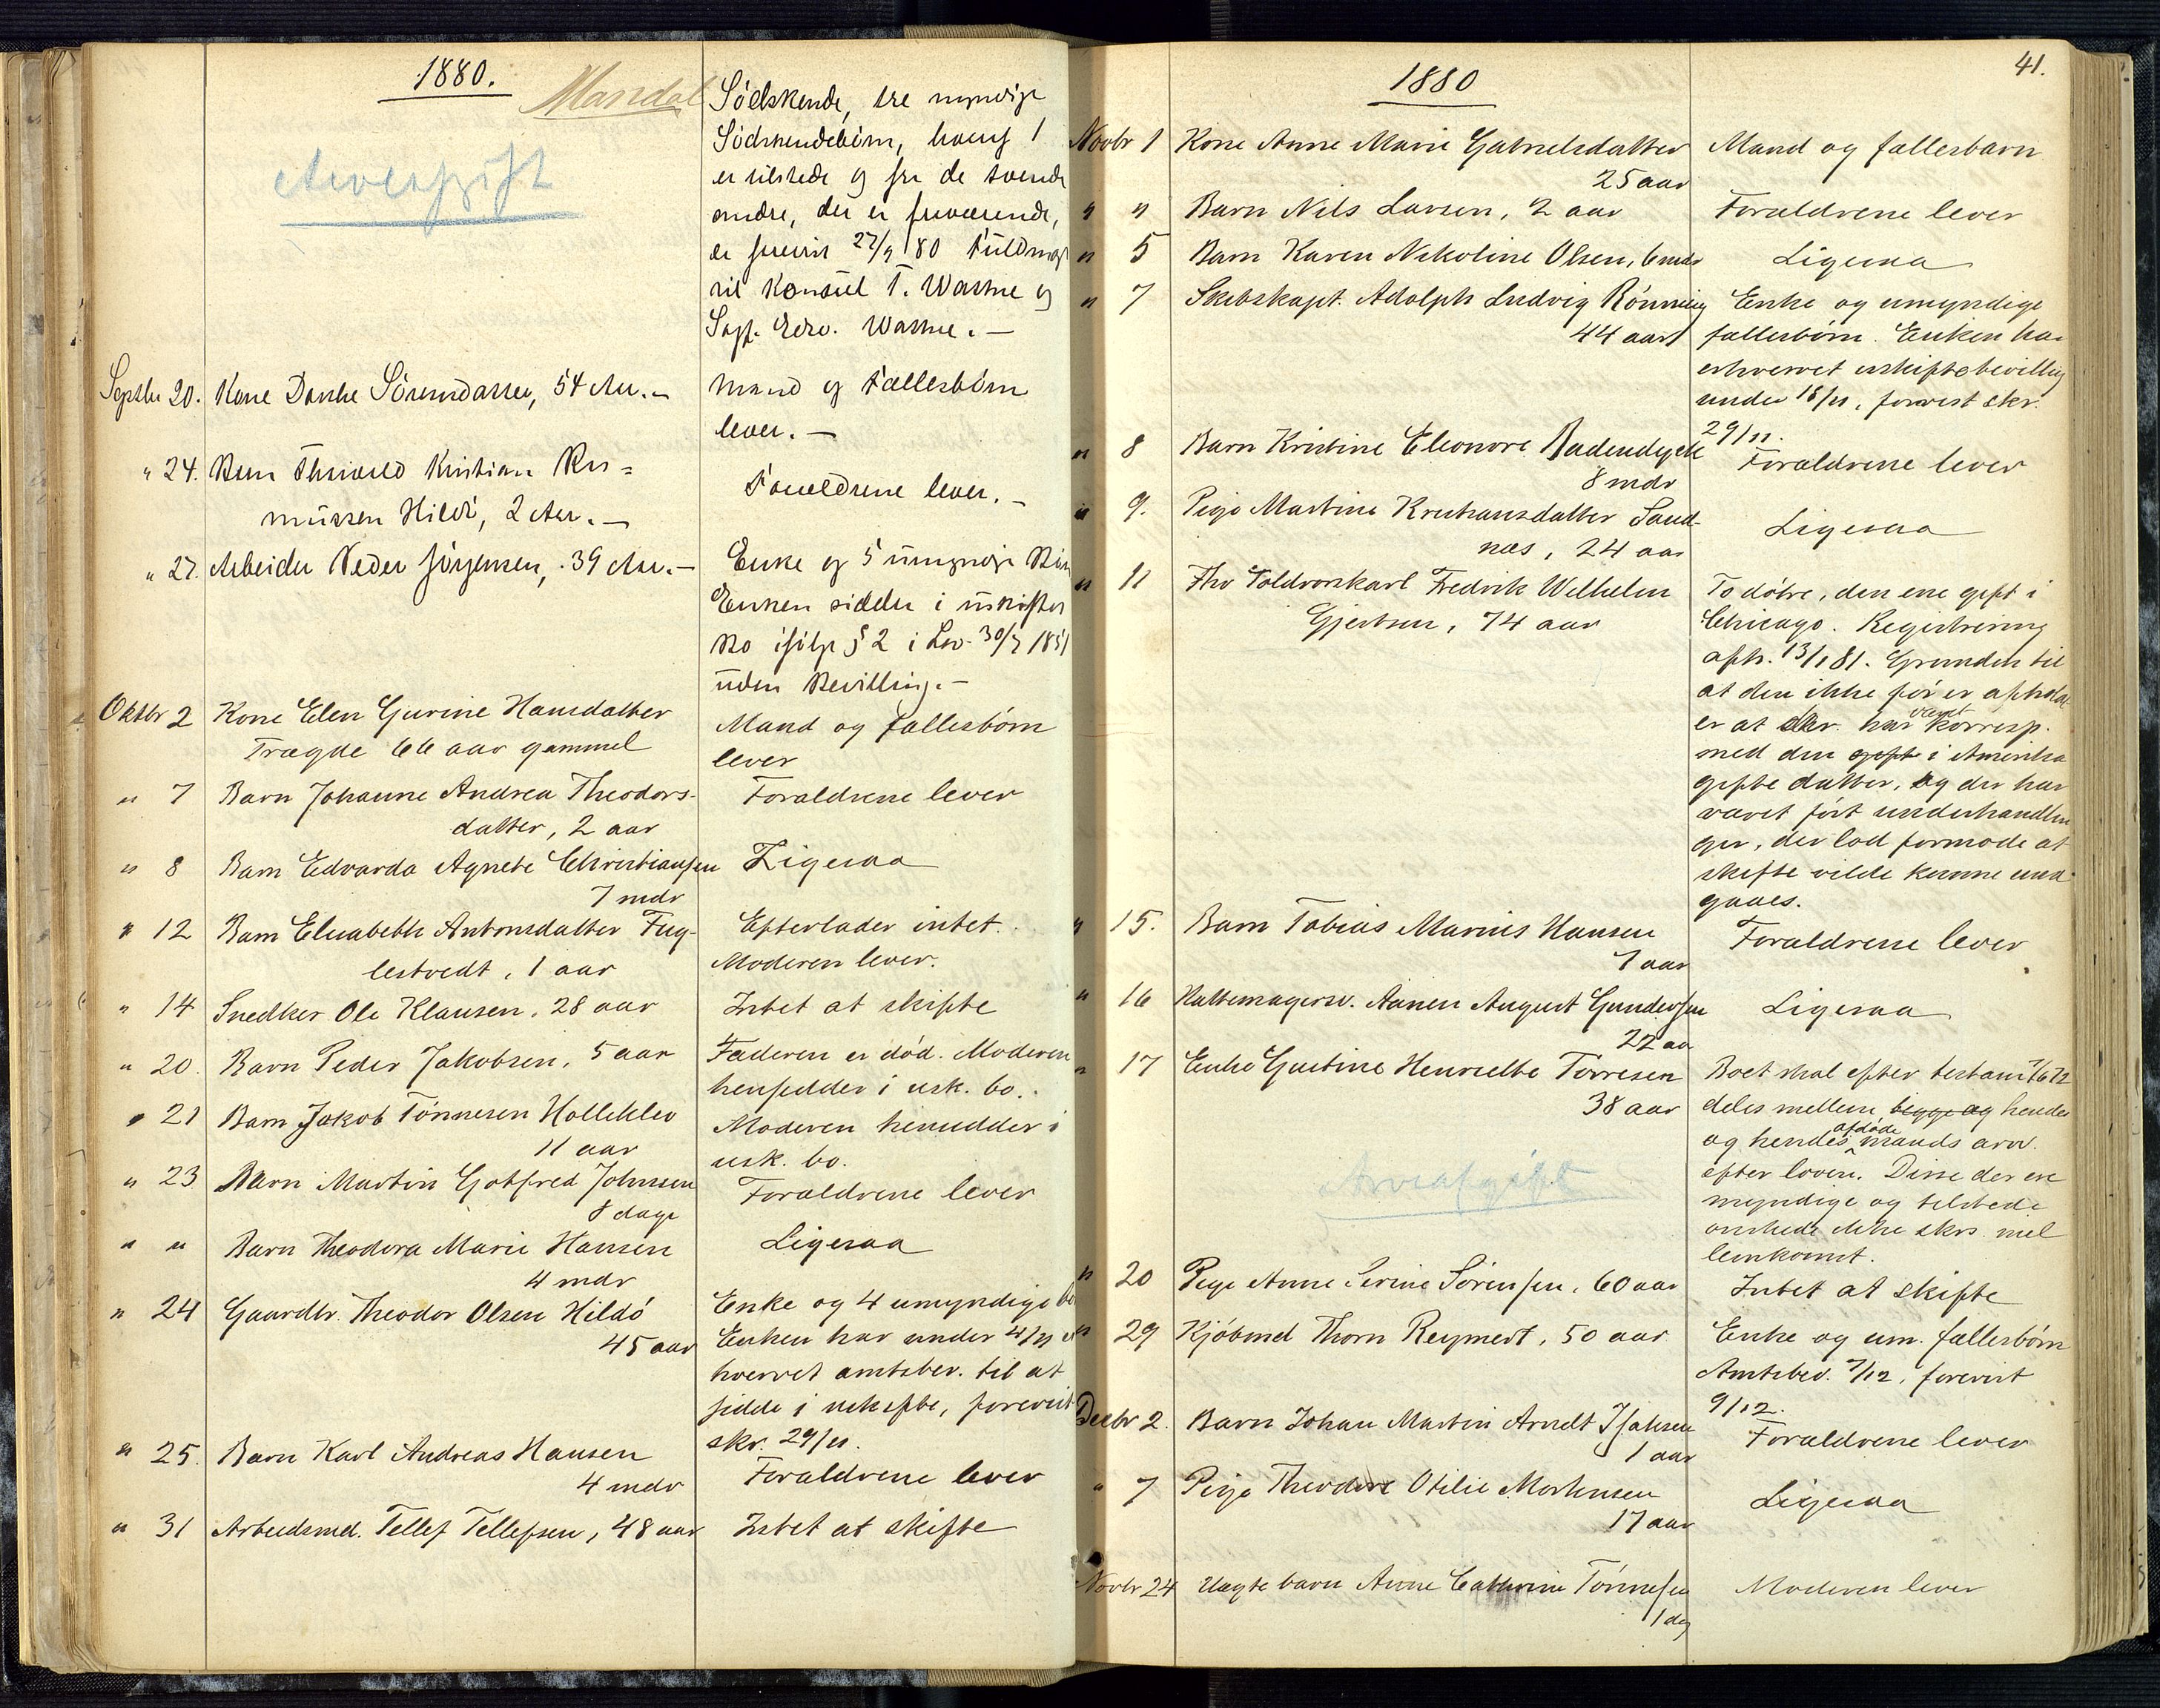 1880.
Mandal
Arveafgift
Sødskende, tre myndige
Sødskendebørn, hvoraf 1
er tilstede og fra de tvende
andre, der er fraværende,
er forevist 27/9 80 Fuldmagt
til Konsul T. Wattne og
Sagf. Edv. Wattne. —
Septbr 20. Kone Dorthe Sørensdatter, 54 Aar. —
Mand og Fællesbørn
lever. —
" 24. Barn Thorvald Kristian Ras=
mussen Hildø, 2 Aar. —
Forældrene lever. —
" 27. Arbeider Peder Jørgensen, 39 Aar. —
Enke og 5 umyndige Børn
Enken sidder i uskiftet
Bo ifølge § 2 i Lov 30/7 1851
uden Bevilling. —
Oktbr 2 Kone Elen Gurine Hansdatter
Trægde 66 aar gammel
Mand og fællesbørn
lever
" 7 Barn Johanne Andrea Theodors-
datter, 2 aar
Forældrene lever
" 8 Barn Edvarda Agnete Christiansen
7 mdr
Ligesaa
" 12 Barn Elisabeth Antonsdatter Fug-
lestvedt, 1 aar
Efterlader intet.
Moderen lever.
" 14 Snedker Ole Klausen, 28 aar
Intet at skifte
" 20. Barn Peder Jakobsen, 5 aar
Faderen er død. Moderen
hensidder i usk. bo.
" 21 Barn Jakob Tønnesen Holleklev
11 aar
Moderen hensidder i
usk. bo.
" 23 Barn Martin Gotfred Johnsen
8 dage
Forældrene lever
" " Barn Theodora Marie Hansen
4 mdr
Ligesaa
" 24 Gaardbr. Theodor Olsen Hildø
45 aar
Enke og 4 umyndige bø
Enken har under 4/11 er
hvervet amtsbev. til at
sidde i uskifte, forevist
skr. 29/11.
" 25. Barn Karl Andreas Hansen
4 mdr
Forældrene lever
" 31 Arbeidsmd. Tellef Tellefsen, 48 aar
Intet at skifte
1880
41.
Novbr 1 Kone Anne Marie Gabrielsdatter
25 aar
Mand og fællesbarn
" " Barn Nils Larsen, 2 aar
Forældrene lever
" 5 Barn Karen Nikoline Olsen, 6 mdr
Ligesaa
" 7 Skibskapt. Adolph Ludvig Rønning
44 aar
Enke og umyndige
fællesbørn. Enken har
erhvervet uskiftebevilling
under 18/11, forevist skr.
29/11.
" 8 Barn Kristine Eleonore Badendyck
8 mdr
Forældrene lever
" 9. Pige Martine Kristiansdatter Sand-
næs, 24 aar
Ligesaa
" 11 Fhv Toldrorskarl Fredrik Wilhelm
Gjertsen, 74 aar
To døtre, den ene gift i
Chicago. Registrering
afh. 13/1 81. Grunden til
at den ikke før er afholdt
er at der har været korresp.
med den gift i Amerika
gifte datter, og der har
været ført underhandlin
ger, der lod formode at
skifte vilde kunne und
gaaes.
" 15. Barn Tobias Marius Hansen
1 aar
Forældrene lever
" 16 Hattemagersv. Aanen August Gundersen
22 aar
Ligesaa
" 17 Enke Gustine Henriette Torresen
38 aar
Arveafgift
Boet skal efter testam 7/6 72
deles mellem begge og hendes
og hendes afdøde mands arv.
efter loven. Disse der ere
myndige og tilstede
ønskede ikke skrs. mel
lemkomst.
" 20 Pige Anne Serine Sørensen, 60 aar
Intet at skifte
" 29 Kjøbmd Thorn Reymert, 50 aar
Enke og um. fællesbørn
Amtsbev. 7/12, forevist
9/12.
Decbr 2. Barn Johan Martin Arndt Isaksen
1 aar
Forældrene lever
" 7 Pige Theodore Otilie Mortensen
17 aar
Ligesaa
Novbr 24 Uægte barn Anne Cathrine Tønnesen
1 dag
Moderen lever